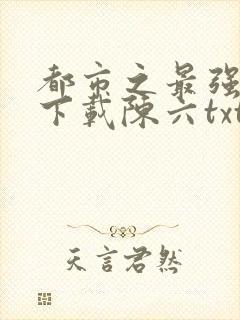 都市之最强
下载陈六txt
天言君然